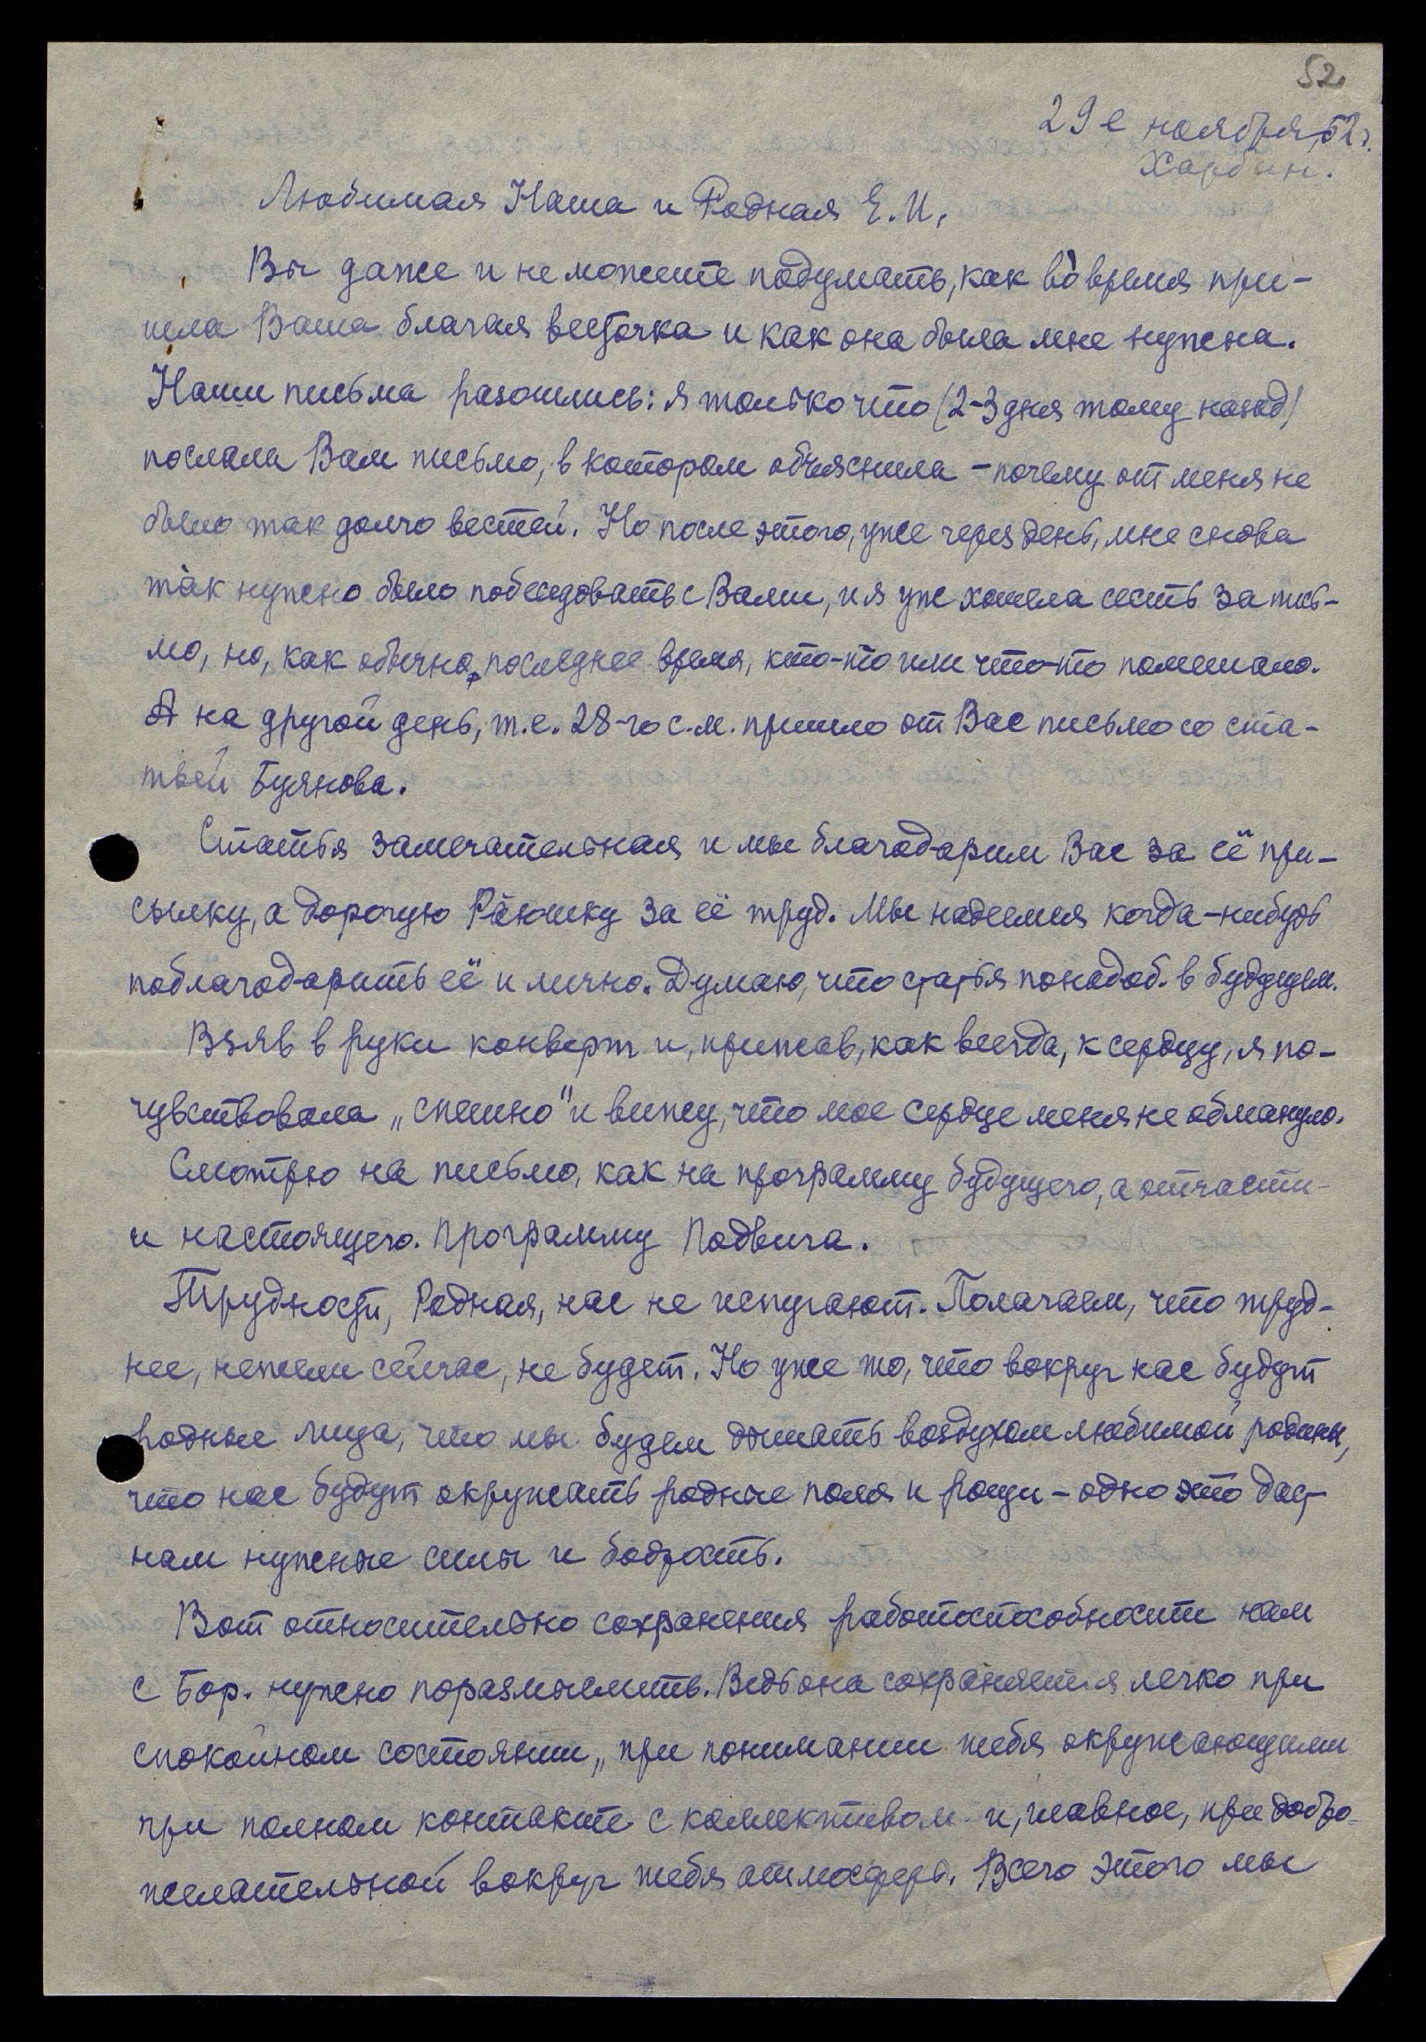 52
29 е ноября, 52 г.
Харбин.
Любимая Наша и Родная Е.И,
Вы даже и не можете подумать, как во время при-
шла Ваша благая весточка и как она была мне нужна.
Наши письма разошлись: я только что (2-3 дня тому назад)
послала Вам письмо, в котором объяснила – почему от меня не
было так долго вестей. Но после этого, уже через день, мне снова
так нужно было побеседовать с Вами, и я уж хотела сесть за пись-
мо, но, как обычно, последнее время, кто-то или что-то помешало.
А на другой день, т.е. 28-го с.м. пришло от Вас письмо со ста-
тьей Буянова.
Статья замечательная и мы благодарим Вас за её при-
сылку, а дорогую Раюшку за её труд. Мы надеемся когда-нибудь
поблагодарить её и лично. Думаю, что статья понадоб. в будущем.
Взяв в руки конверт и, прижав, как всегда, к сердцу, я по-
чувствовала „спешно" и вижу, что мое сердце меня не обмануло.
Смотрю на письмо, как на программу будущего, а отчасти-
и настоящего. Программу Подвига.
Трудности, Родная, нас не испугают. Полагаем, что труд-
нее, нежели сейчас, не будет. Но уже то, что вокруг нас будут
родные лица, что мы будем дышать воздухом любимой родины,
что нас будут окружать родные поля и рощи – одно это даст
нам нужные силы и бодрость.
Вот относительно сохранения работоспособности нам
с Бор. нужно поразмыслить. Ведь она сохраняется легко при
спокойном состоянии, при понимании тебя окружающими
при полном контакте с коллективом и, главное, при добро-
желательной вокруг тебя атмосфере. Всего этого мы